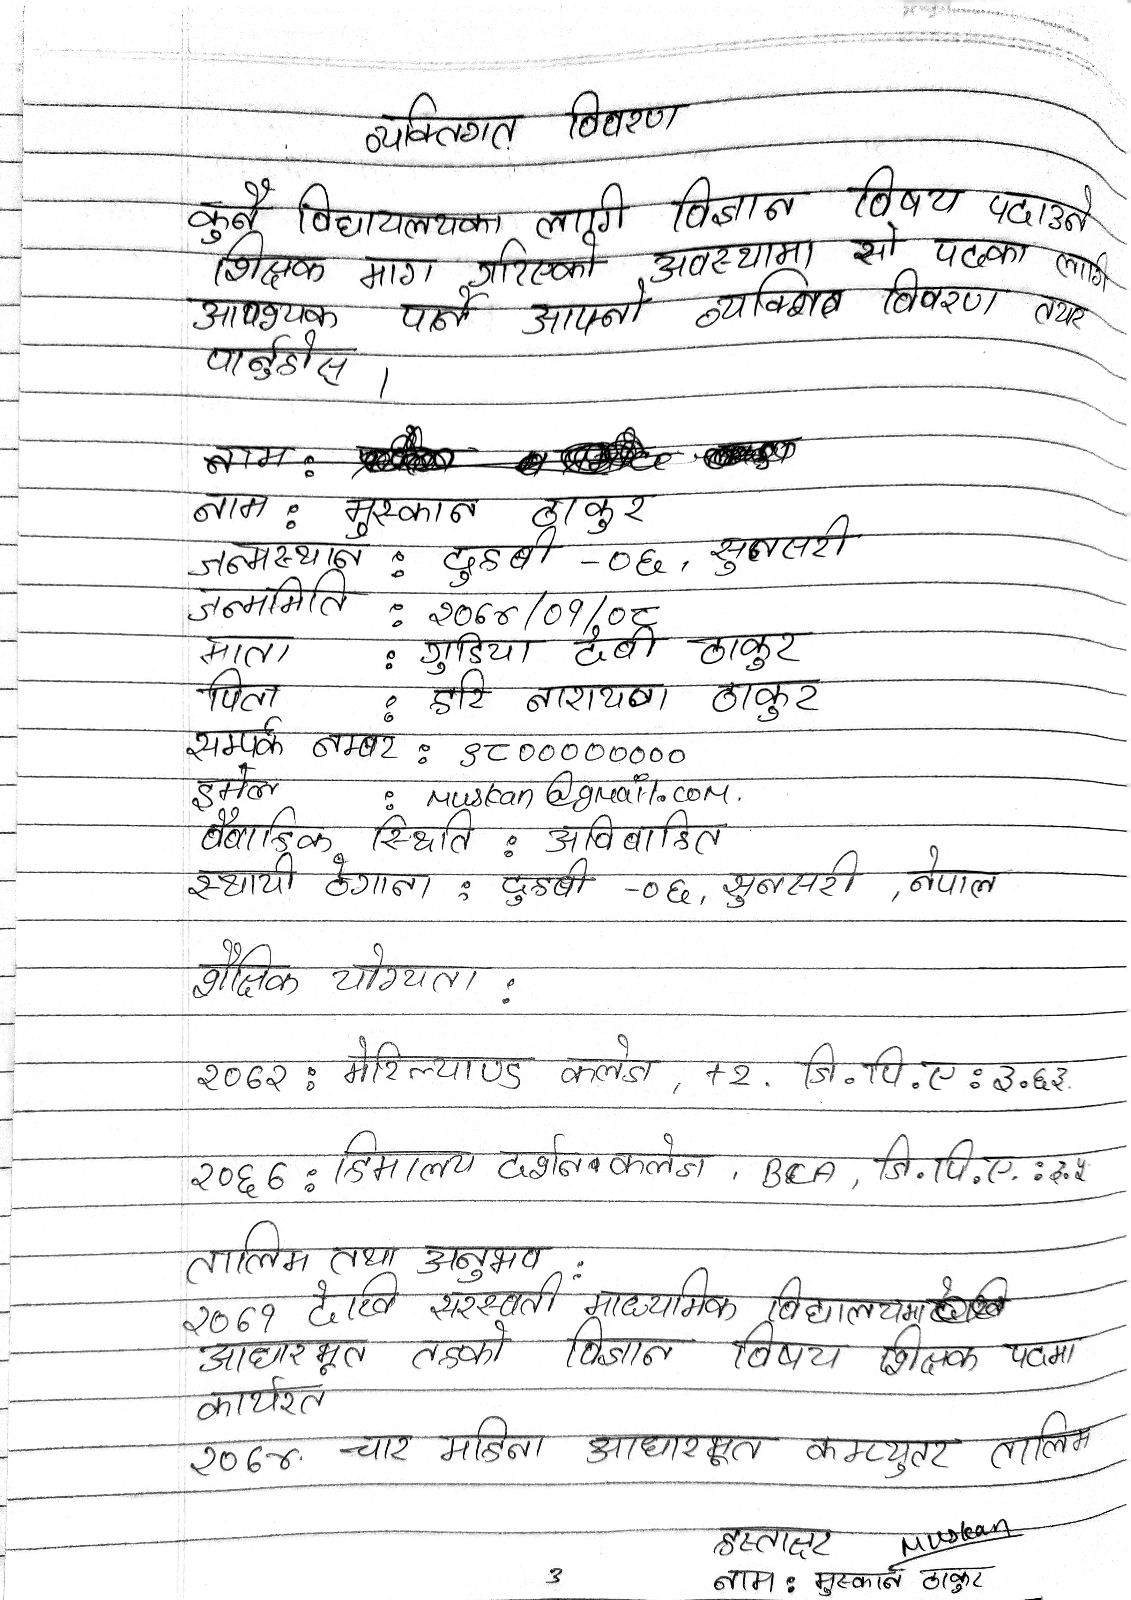 व्यक्तिगत विवरण
कुनै विद्यायलयका लागी विज्ञान विषय पढाउने
शिक्षक माग गरिएको अवस्थामा सो पदका लागि
आवश्यक पर्ने आफ्नो व्यक्तिगत विवरण तयार
पार्नुहोस् ।
नाम :
नाम : मुस्कान ठाकुर
जन्मस्थान : दुहबी -०६, सुनसरी
जन्ममिति : २०६४/०१/०८
माता : गुडिया देवी ठाकुर
पिता : हरि नारायण ठाकुर
सम्पर्क नम्बर : ९८००००००००
इमेल : muskan@gmail.com.
वैवाहिक स्थिति : अविवाहित
स्थायी ठेगाना : दुहबी -०६, सुनसरी , नेपाल
शैक्षिक योग्यता :
२०८२ : मेरिल्याण्ड कलेज , +2. जि.पि.ए : ३.६३
२०८६ : हिमालय दर्शन कलेज , BCA , जि.पि.ए. : ३.५
तालिम तथा अनुभव :
२०८१ देखि सरस्वती माध्यमिक विद्यालयमा
आधारभूत तहको विज्ञान विषय शिक्षक पदमा
कार्यरत
२०८४ चार महिना आधारभूत कम्प्युटर तालिम
हस्ताक्षर Muskan
नाम : मुस्कान ठाकुर
3